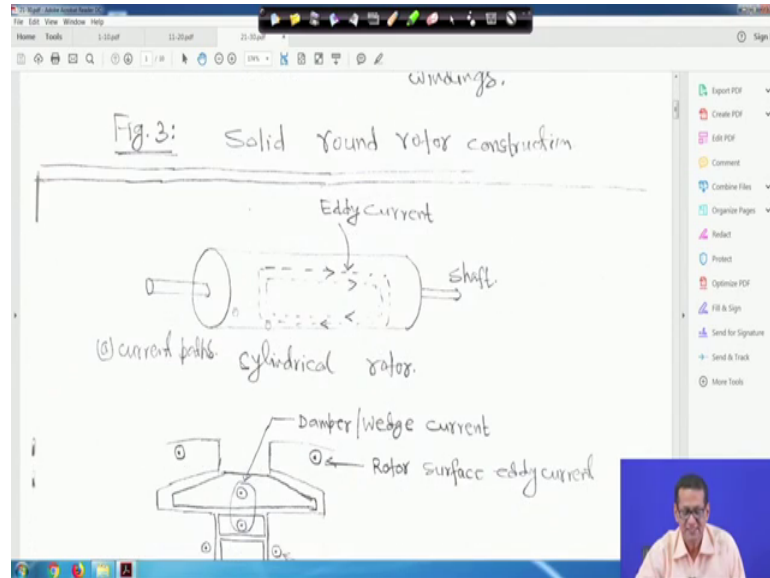 21-30.pdf - Adobe Acrobat Reader DC
File Edit View Window Help
Home Tools 1-10.pdf 11-20.pdf 21-30.pdf × Sign
windings.
Fig. 3: Solid round rotor construction
Eddy current
shaft.
(a) current paths. cylindrical rotor.
Damper/Wedge current
Rotor surface eddy current
Export PDF
Create PDF
Edit PDF
Comment
Combine Files
Organize Pages
Redact
Protect
Optimize PDF
Fill & Sign
Send for Signature
Send & Track
More Tools